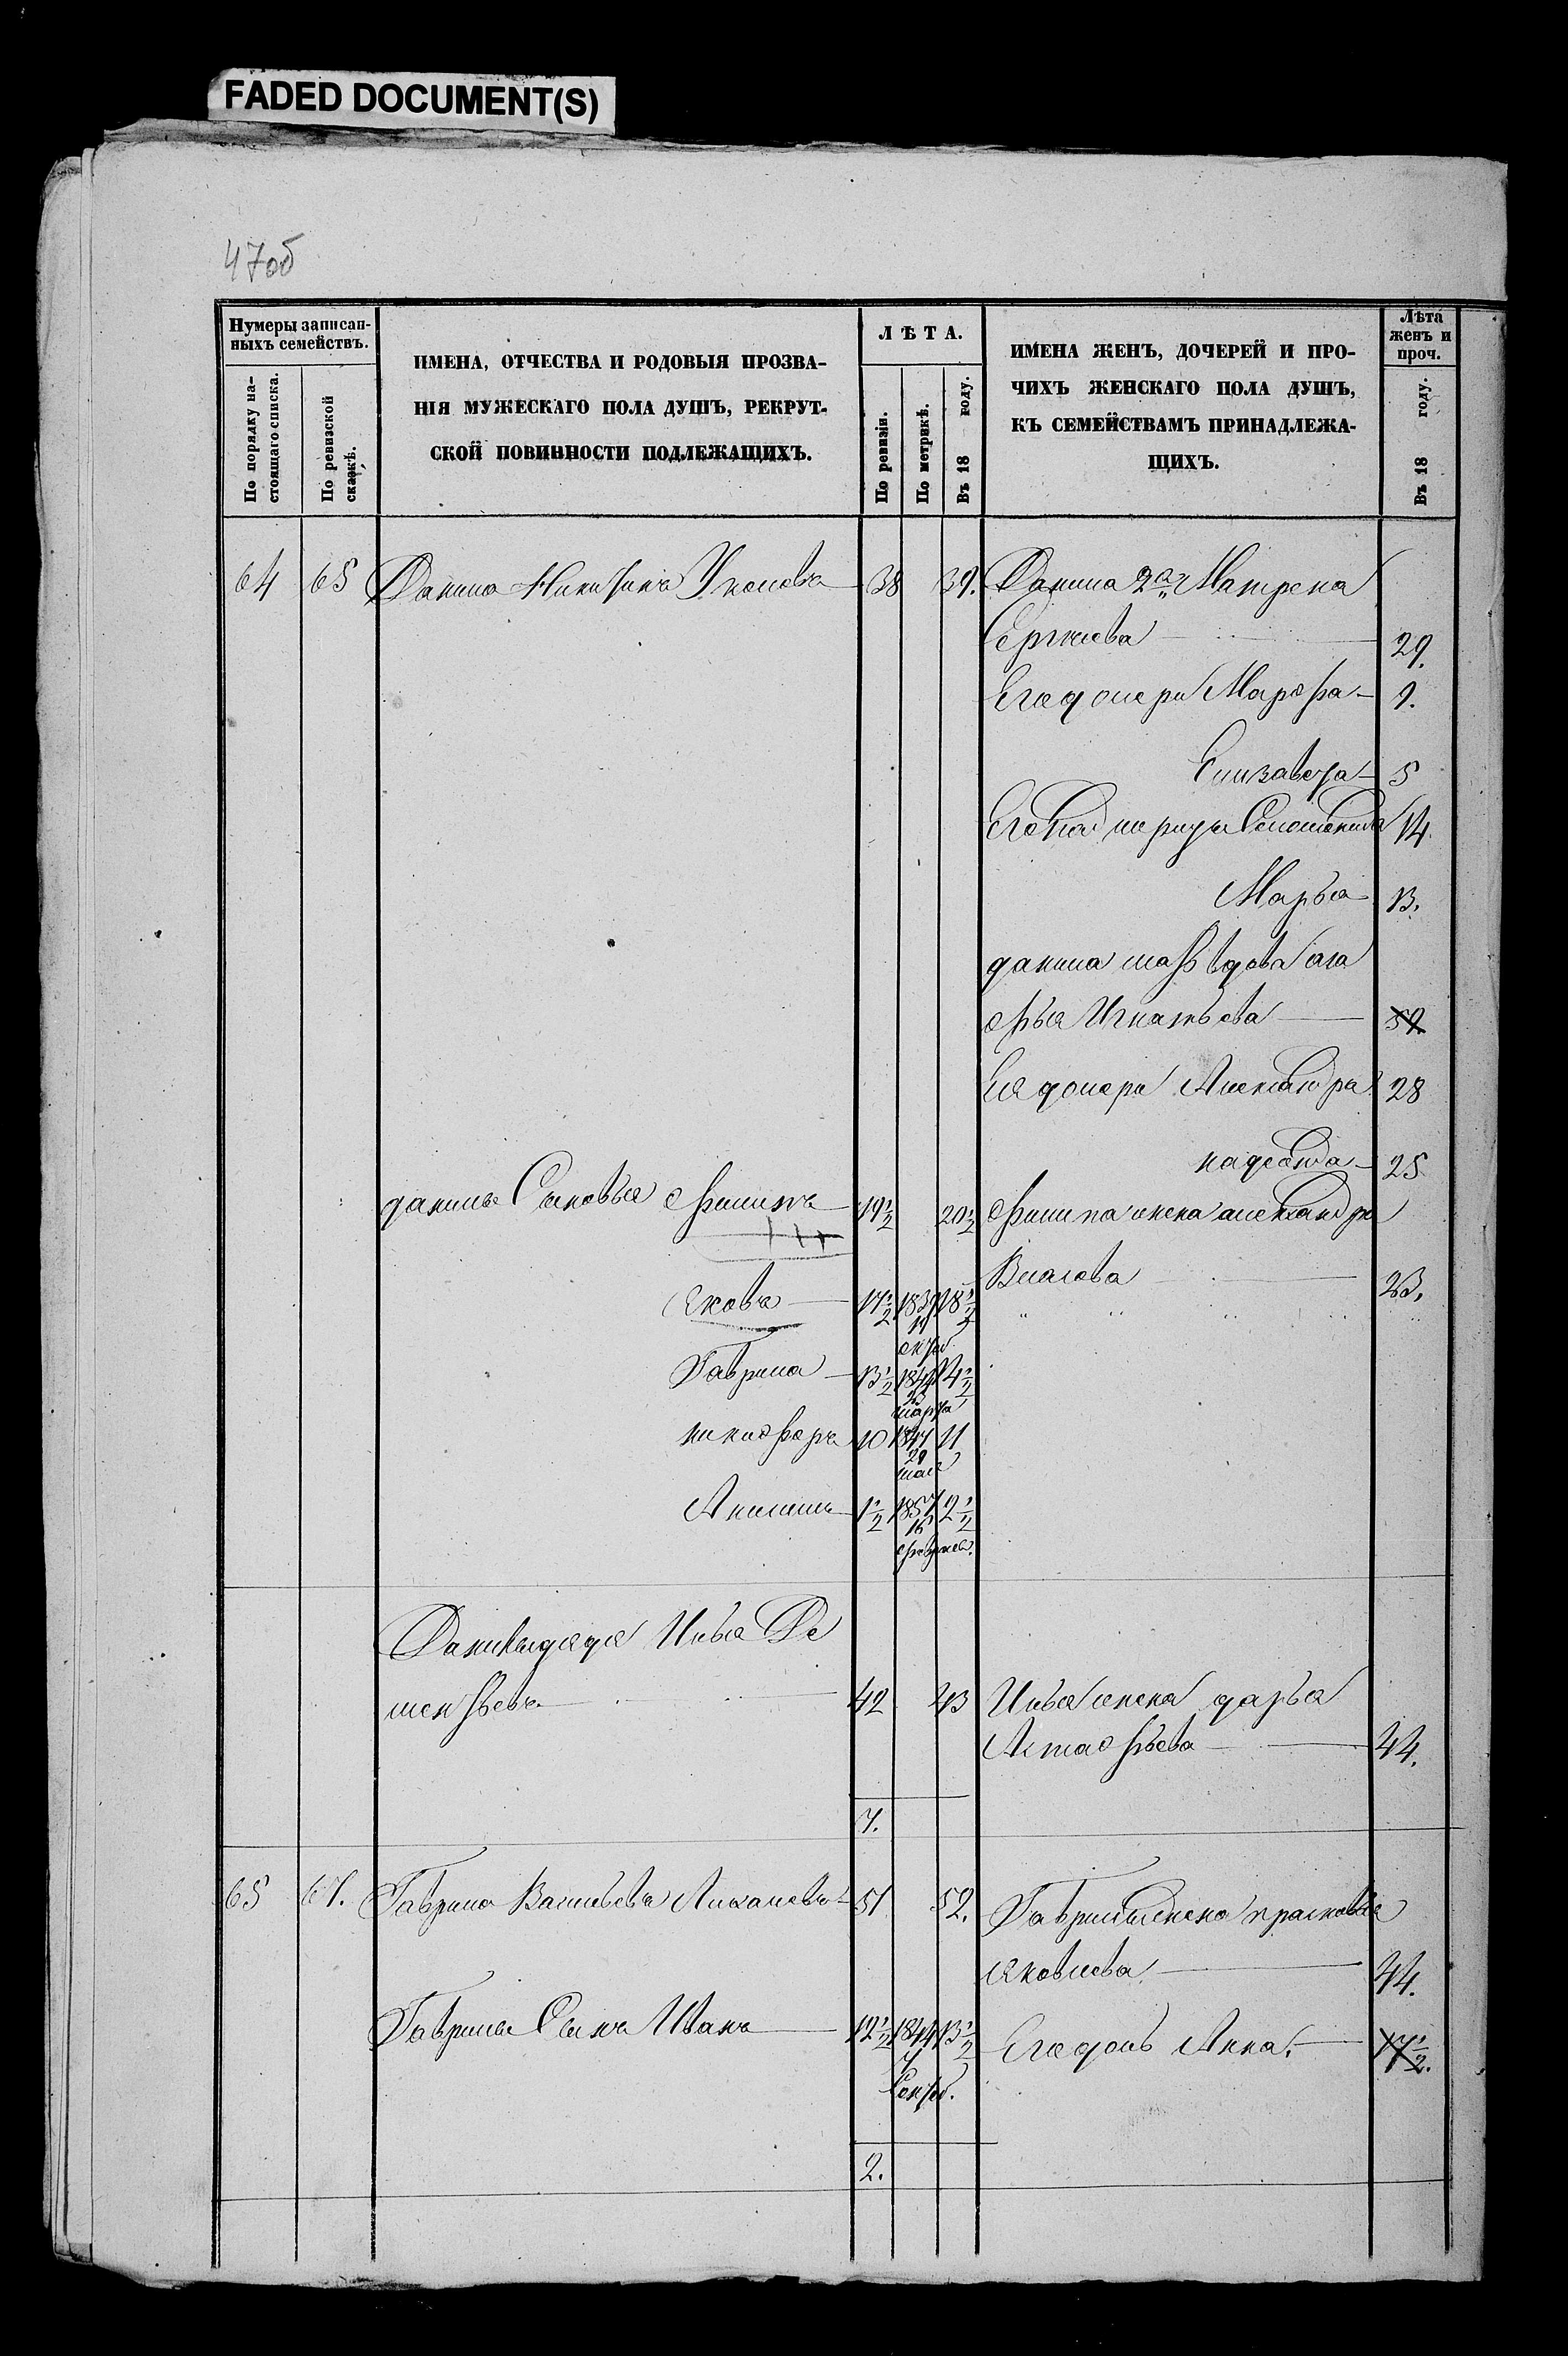 FADED DOCUMENT(S)
47об
Нумеры записан-
ныхъ семействъ.
По порядку на-
стоящаго списка.
По ревизской
сказкѣ.
ИМЕНА, ОТЧЕСТВА И РОДОВЫЯ ПРОЗВА-
НІЯ МУЖЕСКАГО ПОЛА ДУШЪ, РЕКРУТ-
СКОЙ ПОВИННОСТИ ПОДЛЕЖАЩИХЪ.
ЛѢТА.
По ревизіи.
По метрикѣ.
Въ 18 году.
ИМЕНА ЖЕНЪ, ДОЧЕРЕЙ И ПРО-
ЧИХЪ ЖЕНСКАГО ПОЛА ДУШЪ,
КЪ СЕМЕЙСТВАМЪ ПРИНАДЛЕЖА-
ЩИХЪ.
Лѣта
женъ и
проч.
Въ 18 году.
64 65 Данила Никитинъ 38 39. Данила 2я Матрена
Сергиева 29.
Его дочери Марфа 9.
Елизавета 5
Его 14.
Марья 13.
данила вдова ага
фья Игнатьева 59.
Ея дочери Александра 28
надежда 25
данилы Сыновья филипъ 19½ 20½ филипа жена александра
Власова 23.
Яковъ 17½ 1839 18½
октяб
Гаврила 13½ 1844 14½
23
марта
никифоръ 10 1847 11
29
мая
Акимъ 1½ 1857 2½
16
феврал.
Данилы дядя Илья Де
ментьевъ 42 43 Ильи жена дарья
Астафьева 44.
7.
65 67. Гаврила Васильевъ 51 52. Гаврилы жена прасковья
яковлева 44.
Гаврилы Сынъ Иванъ 12½ 1844 13½ Его дочь Анна. 17½.
7
Сентяб.
2.